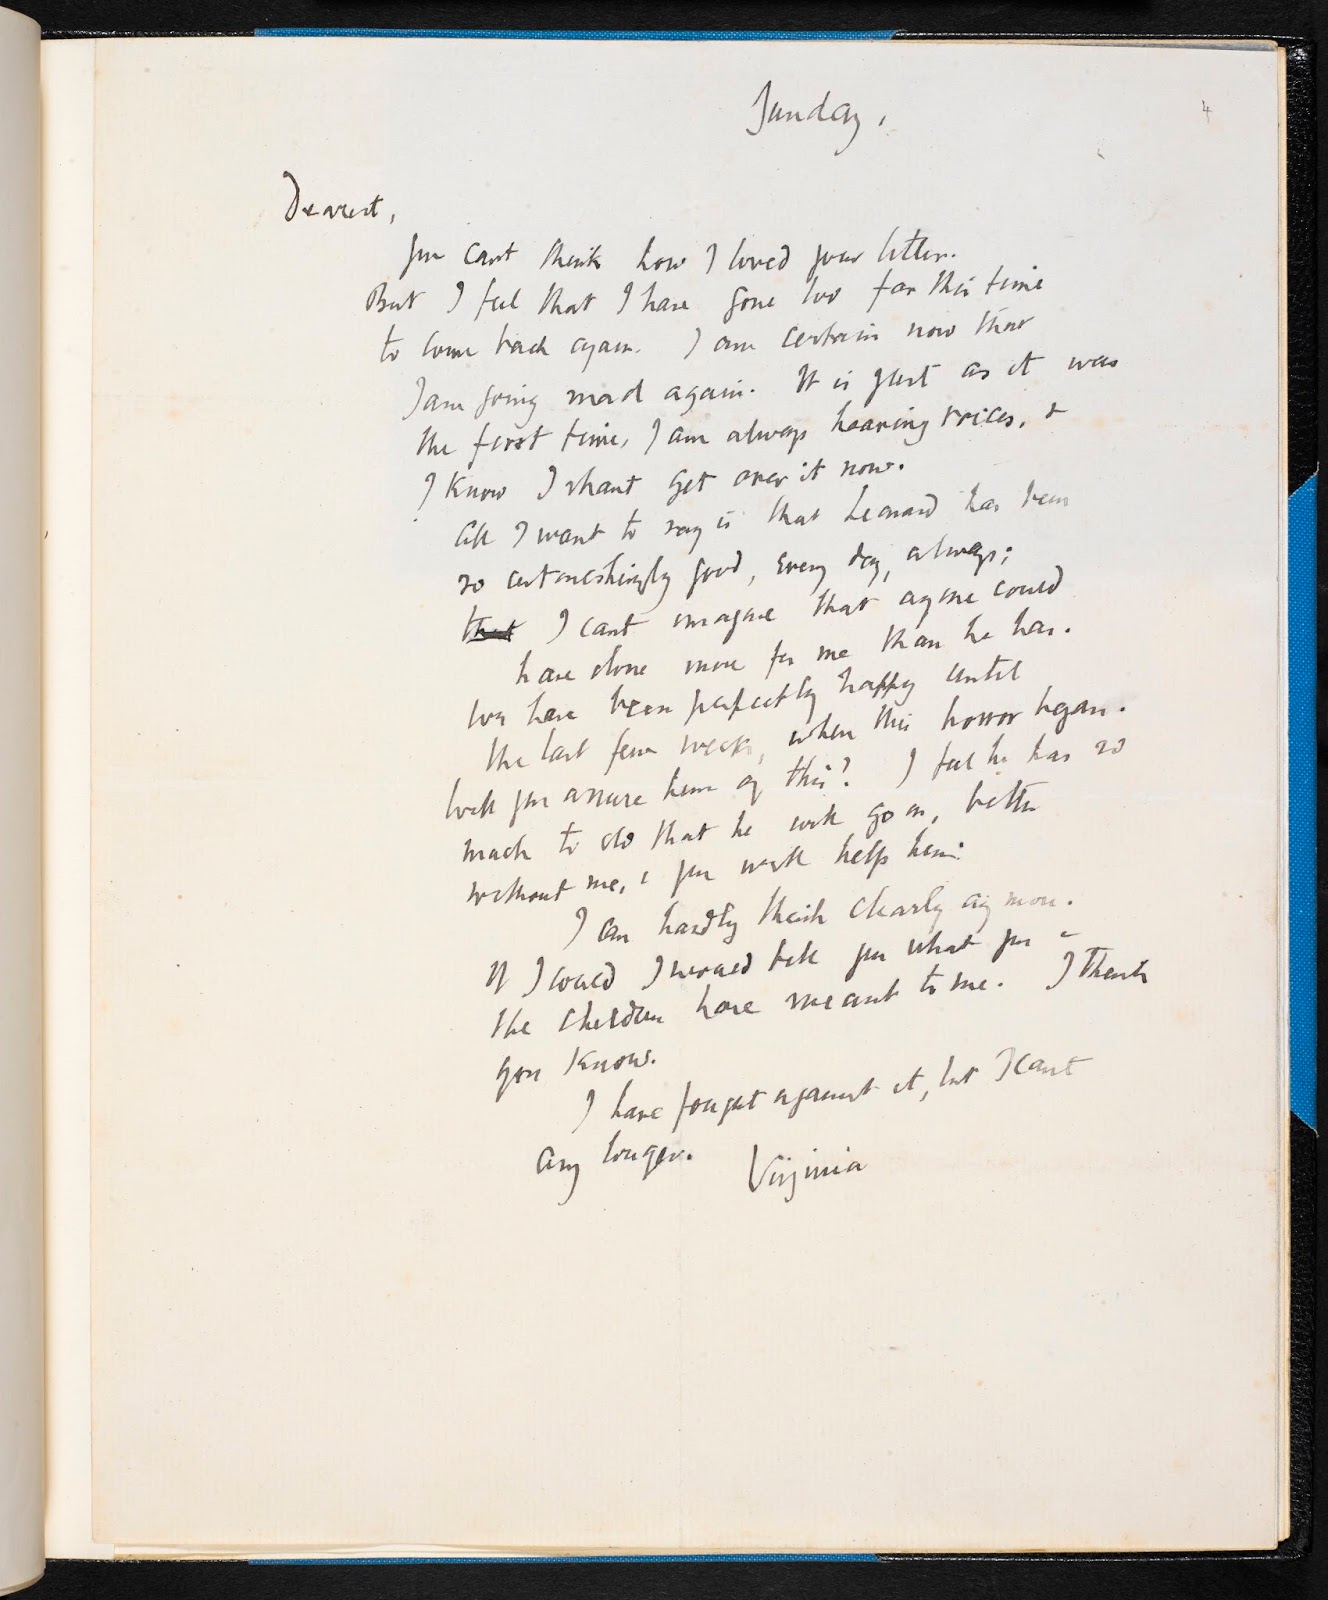 4
Sunday,
Dearest,
You cant think how I loved your letter.
But I feel that I have gone too far this time
to come back again. I am certain now that
I am going mad again. It is just as it was
the first time, I am always hearing voices, &
I know I shant get over it now.
All I want to say is that Leonard has been
so astonishingly good, every day, always;
that I cant imagine that anyone could
have done more for me than he has.
We have been perfectly happy until
the last few weeks, when this horror began.
Will you assure him of this? I feel he has so
much to do that he will go on, better
without me, & you will help him.
I can hardly think clearly any more.
If I could I would tell you what you &
the children have meant to me. I think
you know.
I have fought against it, but I cant
any longer.
Virginia